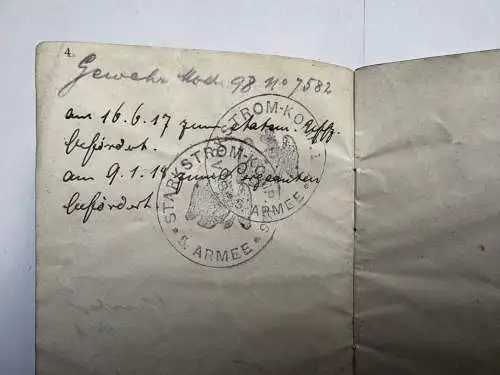 4.
Gewehr Mod. 98 No 7582
am 16.6.17 zum etatsm. Uffz.
befördert.
am 9.1.18 zum Sergeanten
befördert
STARKSTROM-KO
5. ARMEE
STARKSTROM-KO
5. ARMEE